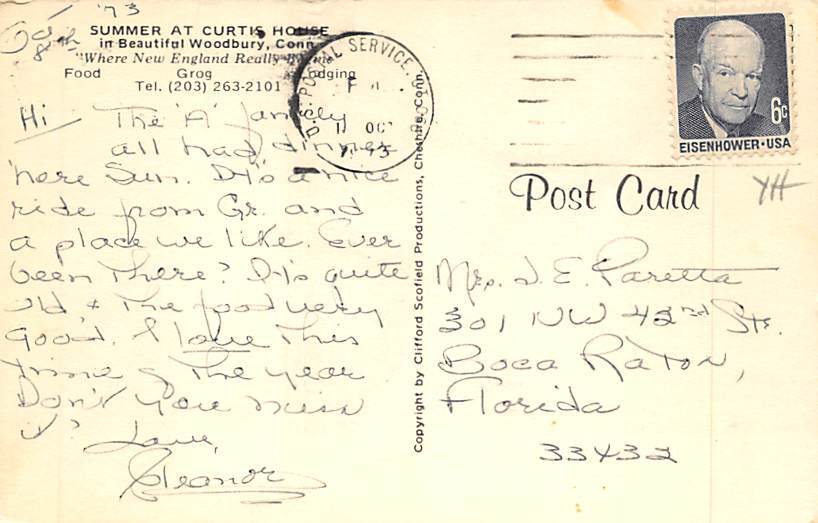 Oct 8th '73
SUMMER AT CURTIS HOUSE
in Beautiful Woodbury, Conn.
"Where New England Really
Food Grog Lodging
Tel. (203) 263-2101
Hi The "A" family
all had dinner
here Sun. It's a nice
ride from Gr. and
a place we like. Ever
been there? It's quite
old, & the food very
good. I love this
time of the year
Don't you miss
it? Love,
Eleanor
Copyright by Clifford Scofield Productions, Cheshire, Conn.
POSTAL SERVICE
OCT
6c
EISENHOWER·USA
Post Card
Mrs. J. E. Paretta
301 NW 42nd St.
Boca Raton,
Florida
33432